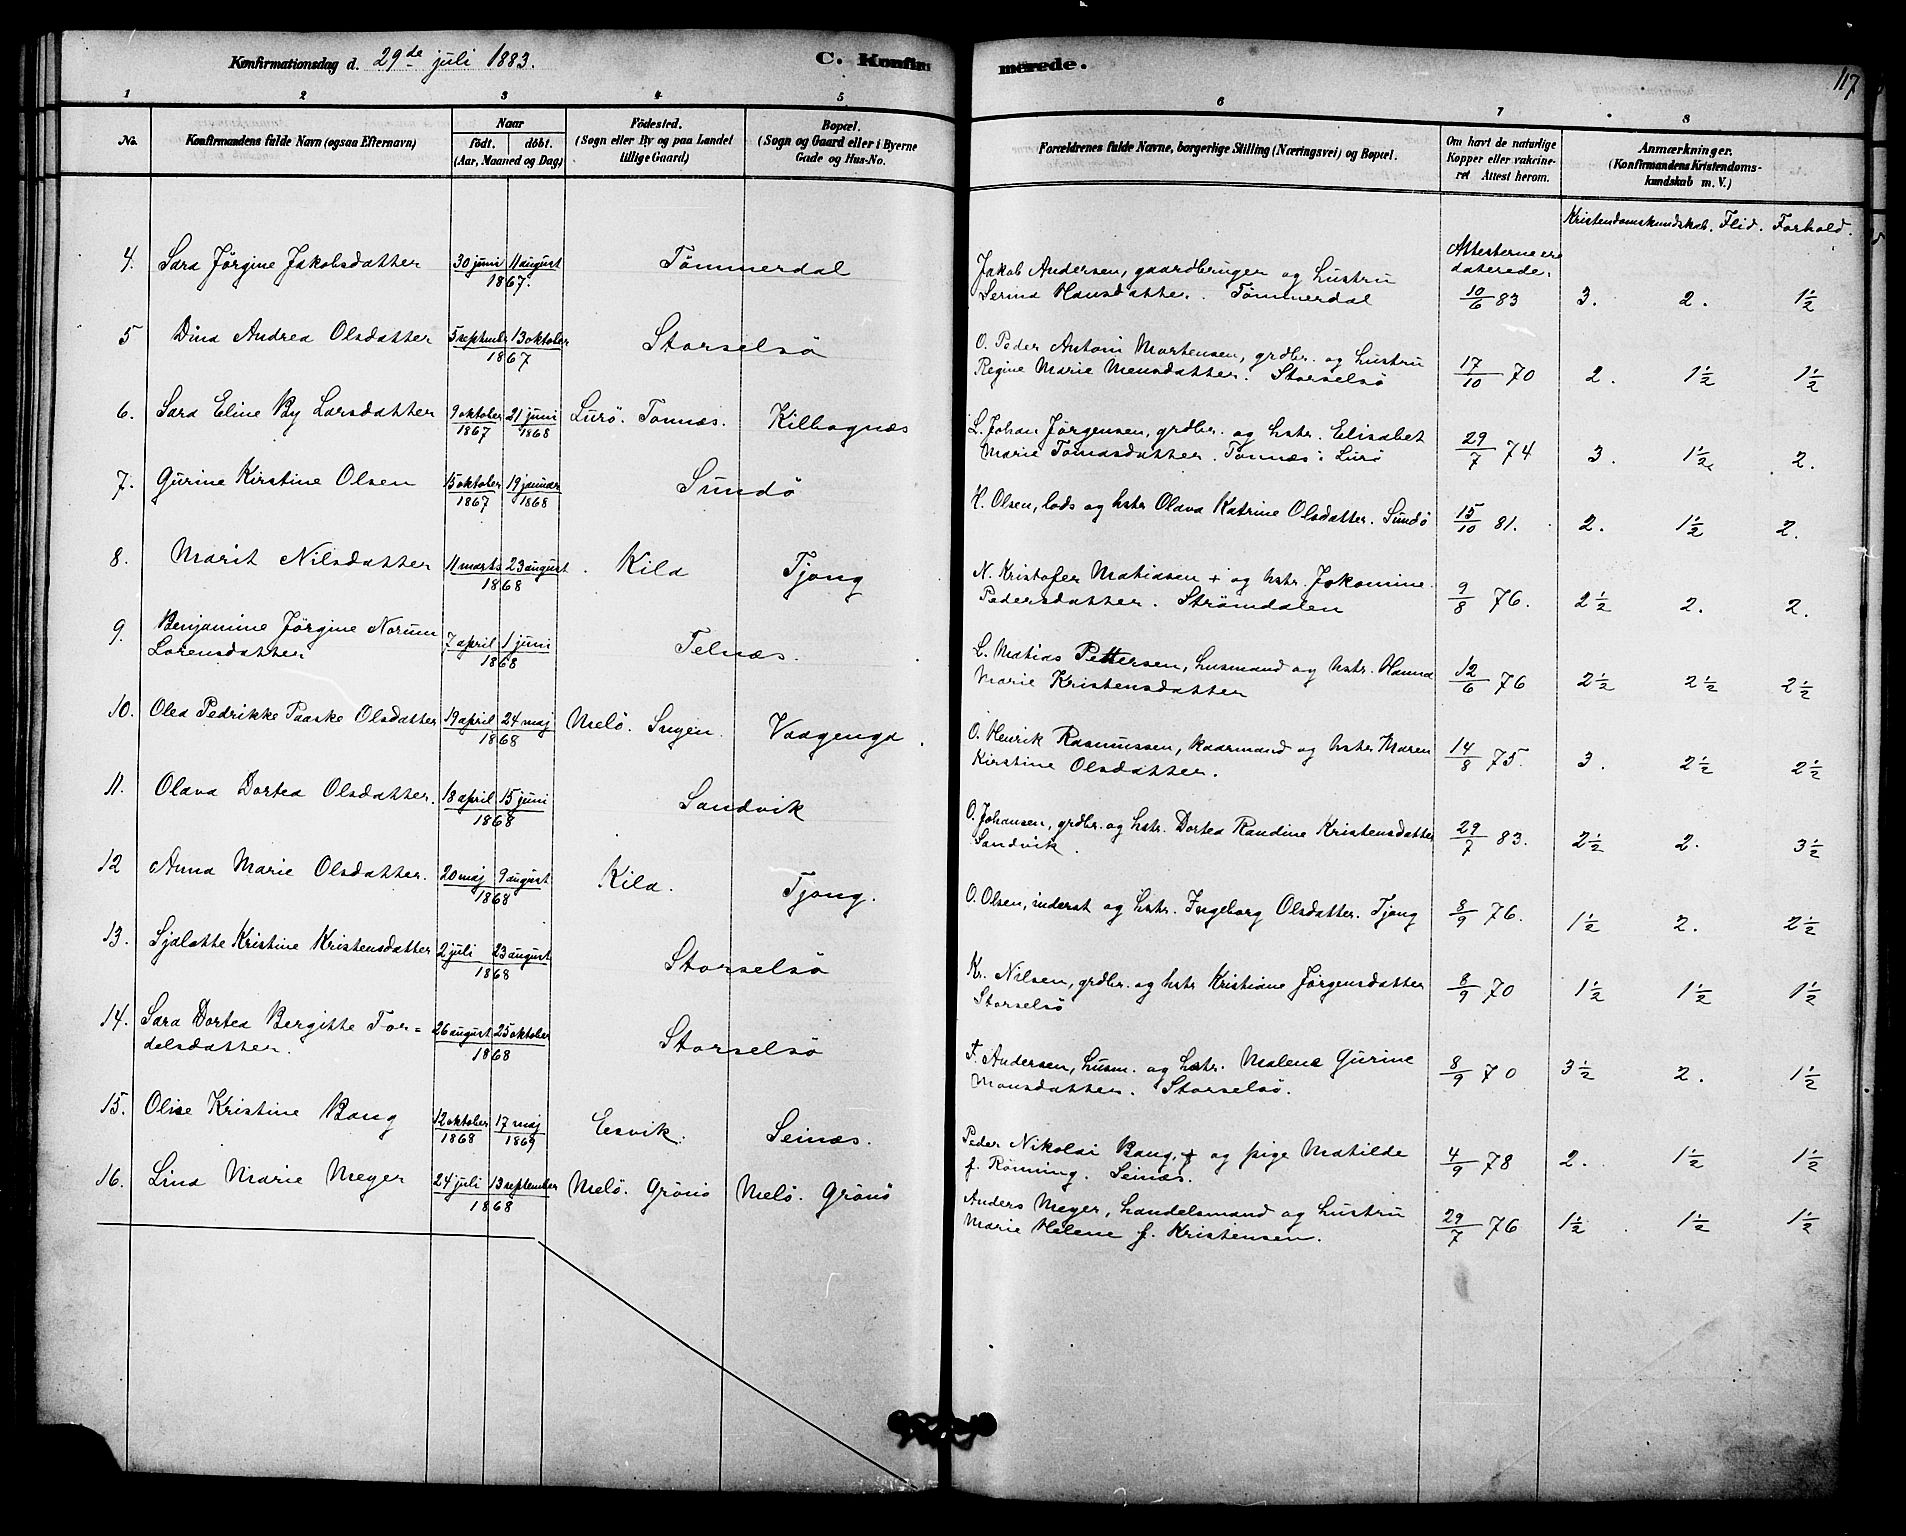 Konfirmationsdag d. 29de juli 1883.
C. Konfirmerede.
117
1 2 3 4 5 6 7 8
No.
Konfirmandens fulde Navn (ogsaa Efternavn)
Naar
født. døbt.
(Aar, Maaned og Dag)
Fødested.
(Sogn eller By og paa Landet
tillige Gaard)
Bopæl.
(Sogn og Gaard eller i Byerne
Gade og Hus-No.
Forældrenes fulde Navne, borgerlige Stilling (Næringsvei) og Bopæl.
Om havt de naturlige
Kopper eller vakcine-
ret Attest herom.
Anmærkninger.
(Konfirmandens Kristendoms-
kundskab m. V.)
Kristendomskundskab. Flid. Forhold.
Attesterne ere
daterede.
4. Sara Jørgine Jakobsdatter 30 juni 11 august 1867. Tømmerdal
Jakob Andersen, gaardbruger og hustru
Serina Hansdatter. Tømmerdal 10/6 83 3. 2. 1½
5 Dina Andrea Olsdatter 5 september 13 oktober 1867 Storselsö
O. Peder Antoni Mortensen, grdbr. og hustru
Regine Marie Monsdatter. Storselsö 17/10 70 2. 1½ 1½
6. Sara Eline By Larsdatter 9 oktober 1867 21 juni 1868 Lurö. Tonnæs. Kilbognæs
L. Johan Jørgensen, grdbr. og hstr. Elisabet
Marie Tomasdatter. Tonnæs i Lurö 29/7 74 3. 1½ 2.
7. Gurine Kirstine Olsen 15 oktober 1867 19 januar 1868 Sundö
H. Olsen, lods og hstr Olava Katrine Olsdatter. Sundö 15/10 81. 2. 1½ 2.
8. Marit Nilsdatter 11 marts 23 august 1868 Kila Tjong
N. Kristofer Matiasen + og hstr. Jakomine
Pedersdatter. Strömdalen 9/8 76. 2½ 2. 2.
9. Benjamine Jørgine Norum
Lorensdatter 7 april 1 juni 1868 Telnæs.
L. Matias Pettersen, husmand og hstr. Hanna
Marie Kristensdatter 12/6 76 2½ 2½ 2½
10. Olea Pedrikke Paaske Olsdatter 19 april 24 maj 1868 Melö. Vaagenga.
O. Henrik Rasmussen, kaarmand og hstr Maren
Kirstine Olsdatter. 14/8 75. 3. 2½ 2½
11. Olava Dortea Olsdatter. 18 april 15 juni 1868 Sandvik
O. Johansen, grdbr. og hstr. Dortea Randine Kristensdatter
Sandvik. 29/7 83. 2½ 2. 3½
12 Anna Marie Olsdatter. 20 maj 9 august 1868 Kila. Tjong.
O. Olsen, inderst og hstr. Ingeborg Olsdatter. Tjong 8/9 76. 1½ 2. 2½
13. Sjalotte Kristine Kristensdatter 2 juli 23 august 1868 Storselsö
Kr. Nilsen, grdbr. og hstr Kristiane Jørgensdatter
Storselsö 8/9 70 1½ 1½ 1½
14. Sara Dortea Bergitte Tor=
dalsdatter. 26 august 25 oktober 1868 Storselsö
T. Andersen, husm. og hstr. Malene Gurine
Monsdatter. Storselsö. 8/9 70 3½ 2. 1½
15. Olise Kristine Bang 12 oktober 1868 17 maj 1869 Esvik. Seinæs.
Peder Nikolai Bang, + og pige Matilde
f. Rønning. Seinæs. 4/9 78 2. 1½ 1½
16. Lina Marie Meyer 24 juli 13 september 1868 Melö. Grönö Melö. Grönö
Anders Meyer, handelsmand og hustru
Marie Helene f. Kristensen. 29/7 76 1½ 1½ 1½